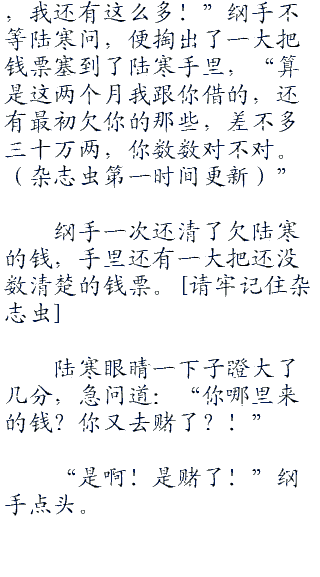 ，我还有这么多！”纲手不
等陆寒问，便掏出了一大把
钱票塞到了陆寒手里，“算
是这两个月我跟你借的，还
有最初欠你的那些，差不多
三十万两，你数数对不对。
（杂志虫第一时间更新）”
纲手一次还清了欠陆寒
的钱，手里还有一大把还没
数清楚的钱票。[请牢记住杂
志虫]
陆寒眼睛一下子瞪大了
几分，急问道：“你哪里来
的钱？你又去赌了？！”
“是啊！是赌了！”纲
手点头。